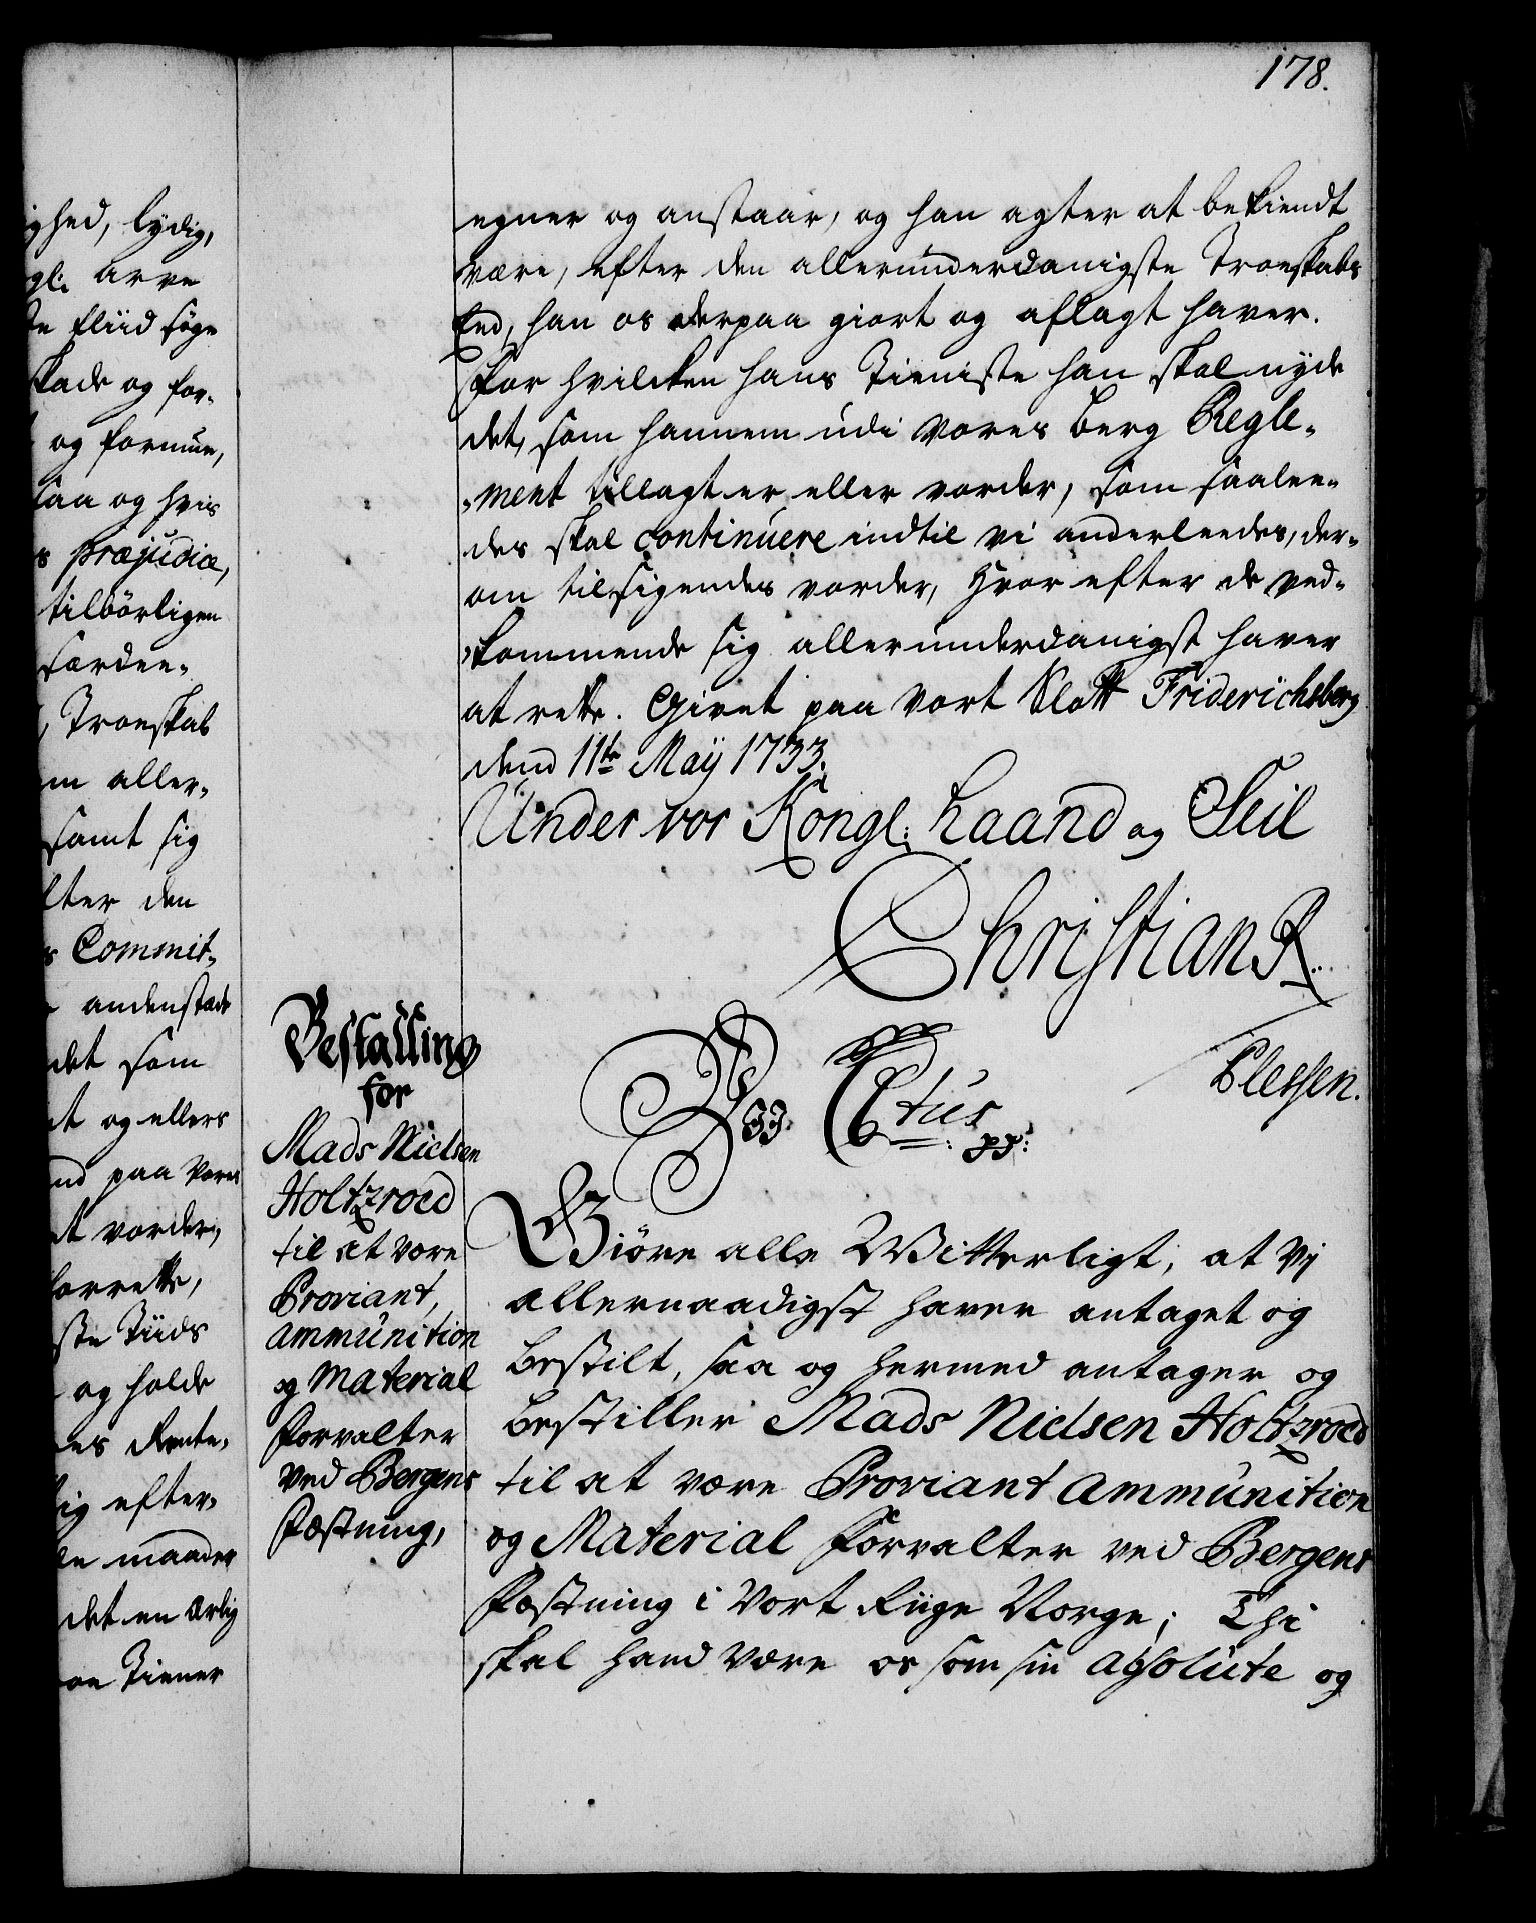 178.
ghed, lydig,
gl: Arve
te Fliid søge
skade og for-
og formue,
saa og hvis
s præjudice,
tilbörligen
særdee-
, Troeskab
m aller-
samt sig
lter den
s Commit-
andenstæds
det som
t og ellers
nd paa Vores
t vorder,
forrette,
ste Tiids
og holde
es Rente-
ig efter-
le maader
det en ærlig
roe Tiener
egner og anstaar, og han agter at bekiendt
være, efter den allerunderdanigste Troeskabs
Eed, han os derpaa giort og aflagt haver.
For hvilcken hans Tieniste han skal nyde
det, som hannem udi Vores Berg Regle-
-ment tillagt er eller vorder, som saalee-
des skal continuere indtil vi anderleedes, der-
om tilsigendes vorder, Hvor efter de ved-
-kommende sig allerunderdanigst haver
at rette. Givet paa Vort Slott Friderichsberg
dend 11te Maÿ 1733.
Under vor Kongl: Haand og Seil
Christian R.
Plessen.
Bestalling
for
Mads Nielsen
Holtzroed
til at være
Proviant,
Ammunition
og Material
Forvalter
ved Bergens
Fæstning,
Ctus pp:
Giöre alle Witterligt, at Vj
allernaadigst haver antaget og
bestilt, saa og hermed antager og
bestiller Mads Nielsen Holtzroed
til at være Proviant Ammunition
og Material Forvalter ved Bergens
Fæstning i Vort Riige Norge; Thi
skal hand være os som sin absolute og